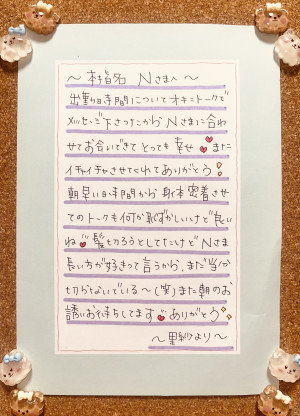 ～本指名 Nさまへ～
出勤時間についてオキニトークで
メッセージ下さってたからNさまに合わ
せてお会いできてとっても幸せ❤また
イチャイチャさせてくれてありがとう！
朝早い時間から身体密着させ
てのトークも何か恥ずかしいけど良い
ね❤髪切ろうとしてたけどNさま
長い方が好きって言うから、まだ当分
切らないでいる～(笑)また朝のお
誘いお待ちしてます❤ありがとう✨
～里紗より～